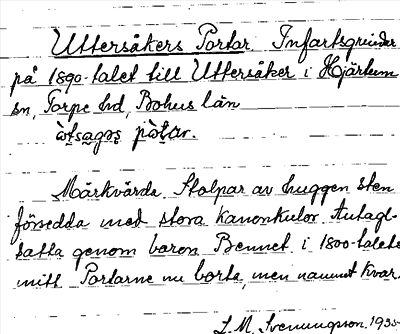 Uttersäkers Portar. Infartsgrindar
på 1890-talet till Uttersäker i Hjärtum
sn, Torpe hd, Bohus län
Märkvärda. Stolpar av huggen sten
försedda med stora kanonkulor. Autagl.
satta genom baron Bennet i 1800-talets
mitt. Portarne nu borta, men namnet kvar.
L. M. Svenungsson. 1935